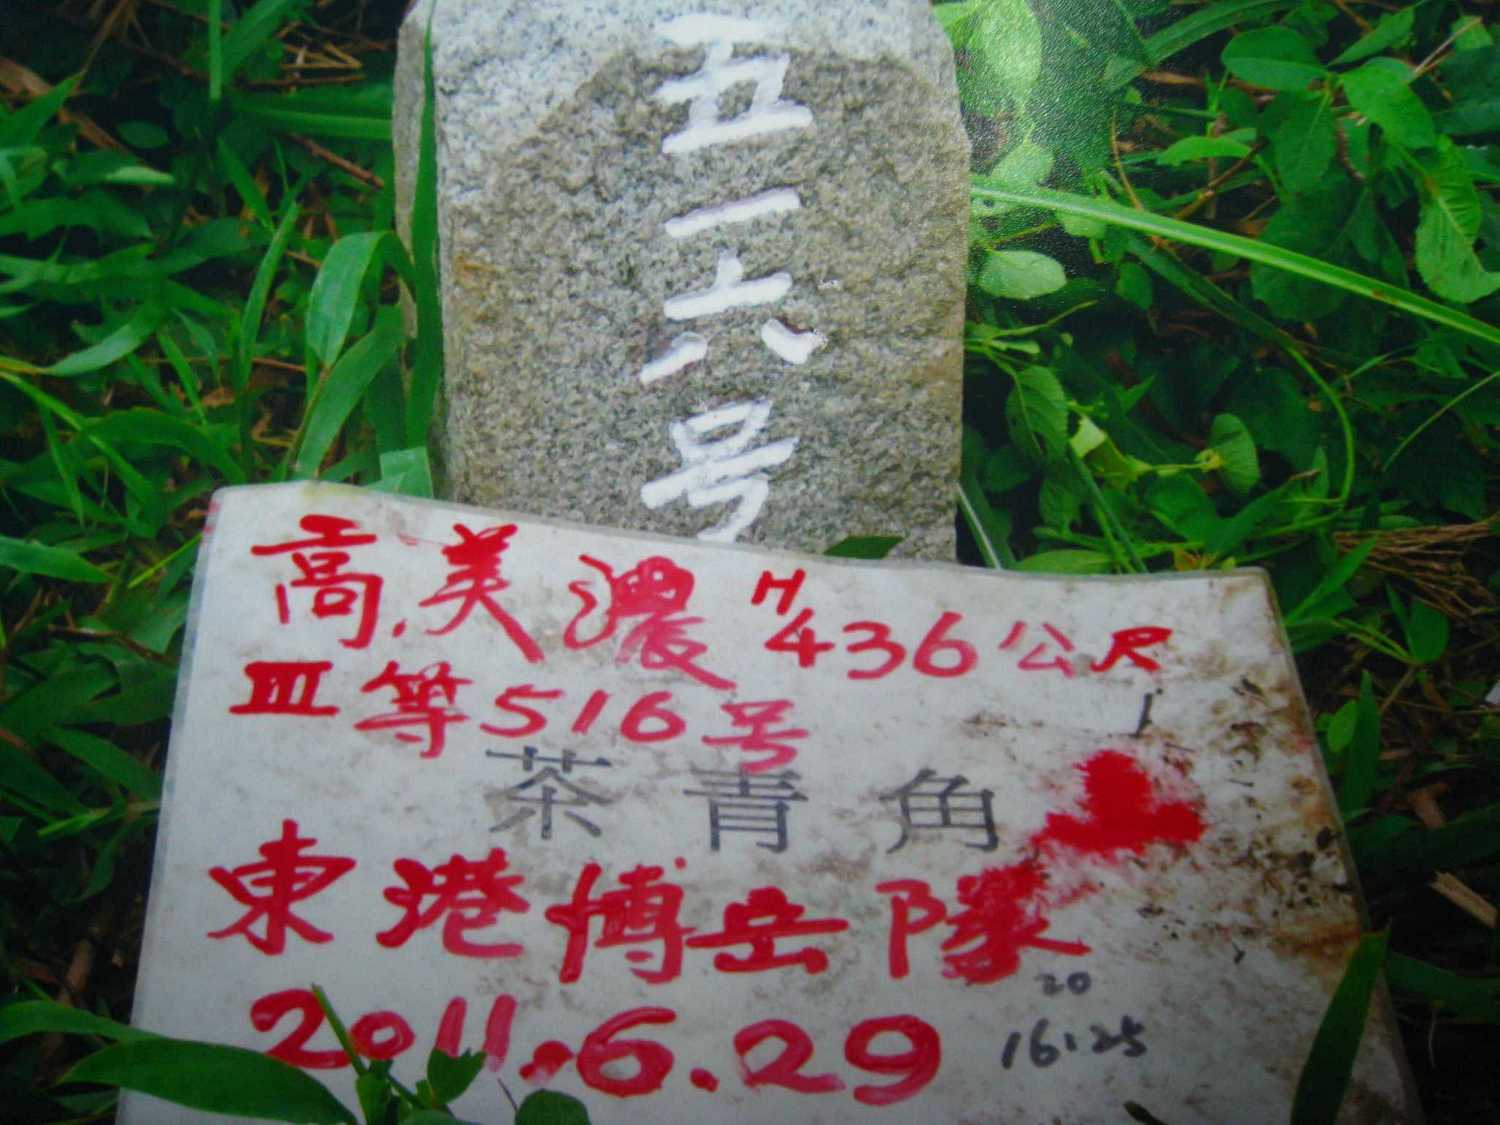 五一六号
高.美濃 H 436公尺
III等516号
茶青角
東港博岳隊
20
2011.6.29 16:25